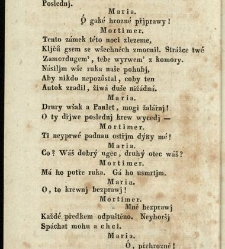 Posledaj.
Maria.
Ó gaké hrozné přjprawy!
Mortimer.
Tento zámek této noci zlezeme,
Kljčů gsem se wšechněch zmocnil. Strážce twé
Zamordugem', tebe wyrwem' z komory.
Násyljm wše ruka naše pohubj,
Aby nikdo nepozůstal, coby ten
Autok zradil, žiwá duše nižádná.
Maria.
Drury wšak a Paulet, mogi žalárnj!
O ty dljwe poslednj krew wycedj —
Mortimer.
Ti neyprwé padnau ostrjm dýky mé!
Maria.
Co? Wáš dobrý ugec, druhý otec wáš?
Mortimer.
Má ho potře ruka. Gá ho usmrtjm.
Maria.
O, to krewnj bezprawj!
Mortimer.
Mně bezprawj
Každé předkem odpuštěno. Neyhoršj
Spáchat mohu a chci.
Maria.
Ó, přehrozné!